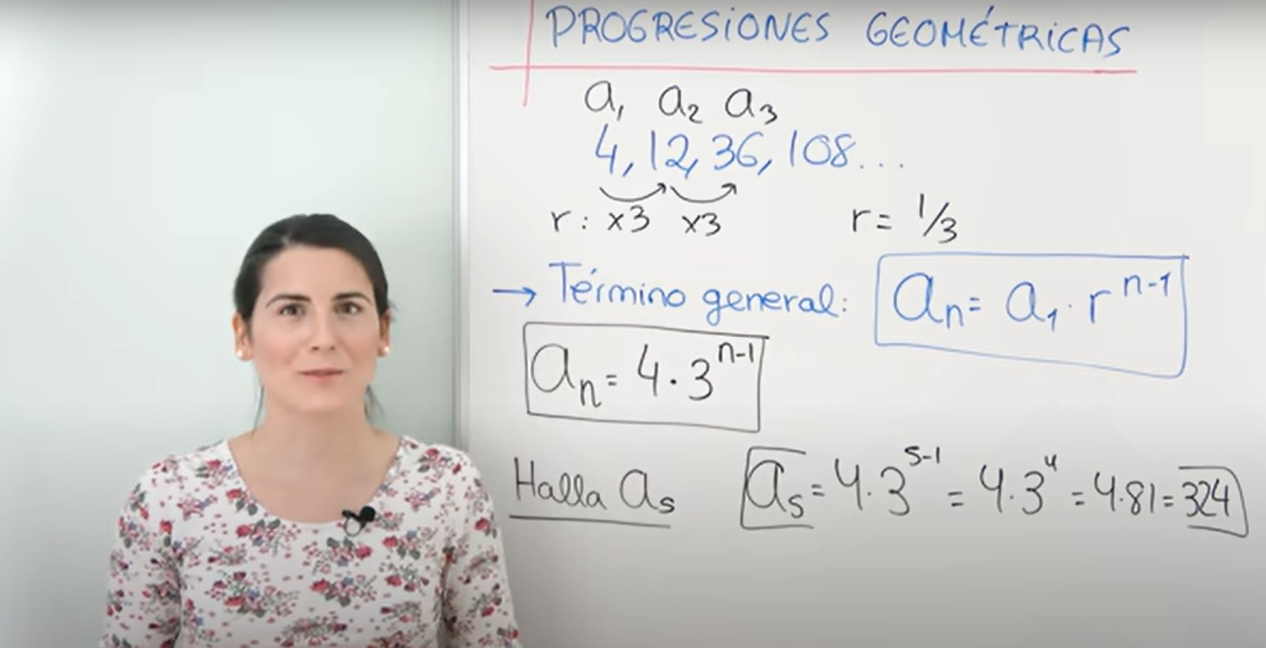 PROGRESIONES GEOMÉTRICAS
a₁ a₂ a₃
4, 12, 36, 108...
r: x3 x3 r= 1/3
→ Término general: aₙ= a₁· rⁿ⁻¹
aₙ= 4·3ⁿ⁻¹
Halla a₅ a₅= 4·3⁵⁻¹ = 4·3⁴ = 4·81= 324